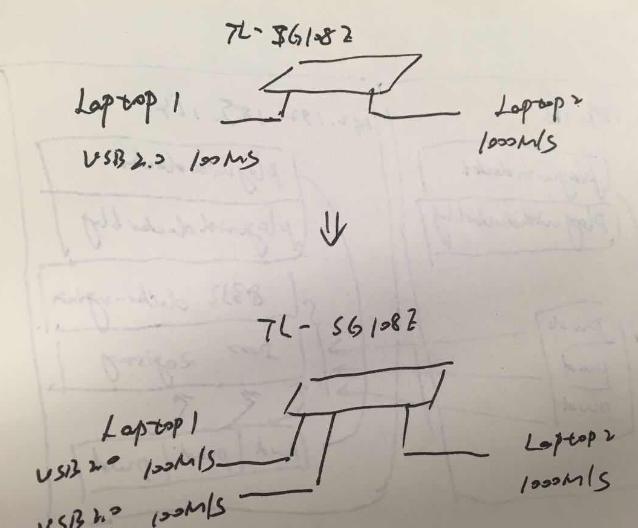 TL-SG108E
Laptop 1
USB 2.0 100M/S
Laptop 2
1000M/S
⇓
TL-SG108E
Laptop 1
USB 2.0 100M/S
USB 2.0 100M/S
Laptop 2
1000M/S